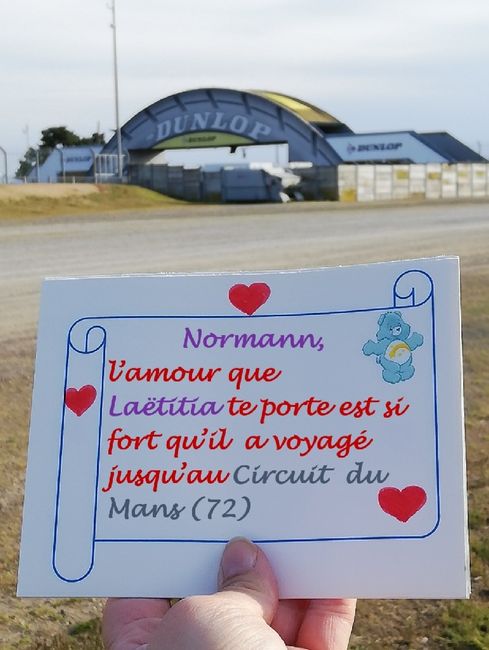 DUNLOP
DUNLOP
DUNLOP
Normann,
l'amour que
Laëtitia te porte est si
fort qu'il a voyagé
jusqu'au Circuit du
Mans (72)